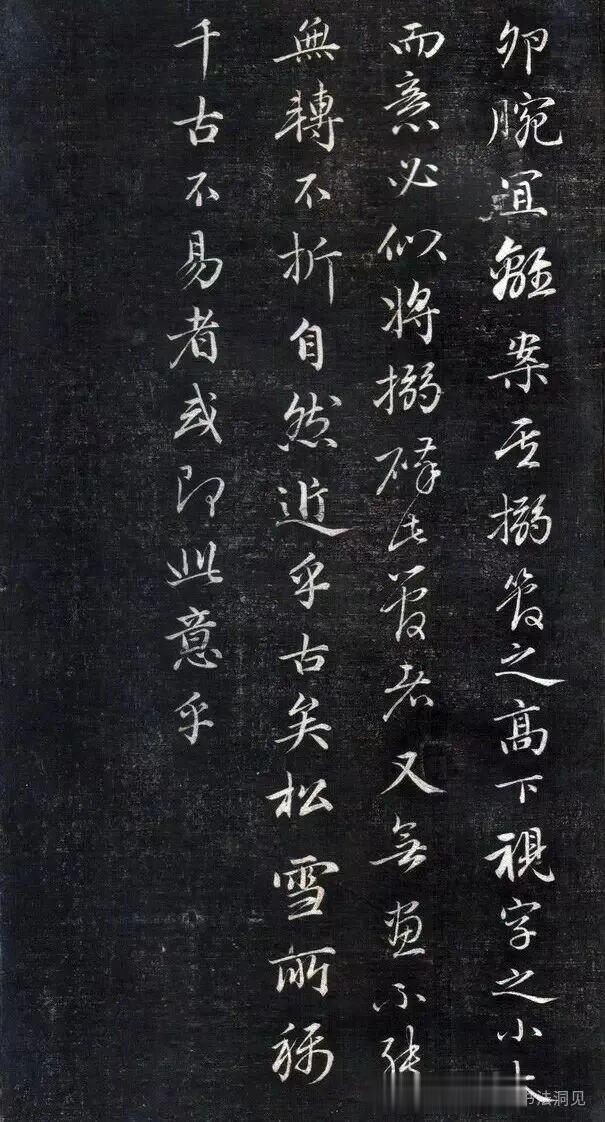 卯腕宜離案至搦管之高下視字之小大
而意必似将搦碎此管者又無畫不轉
無轉不折自然近乎古矣松雪所稱
千古不易者或即此意乎
书法洞见